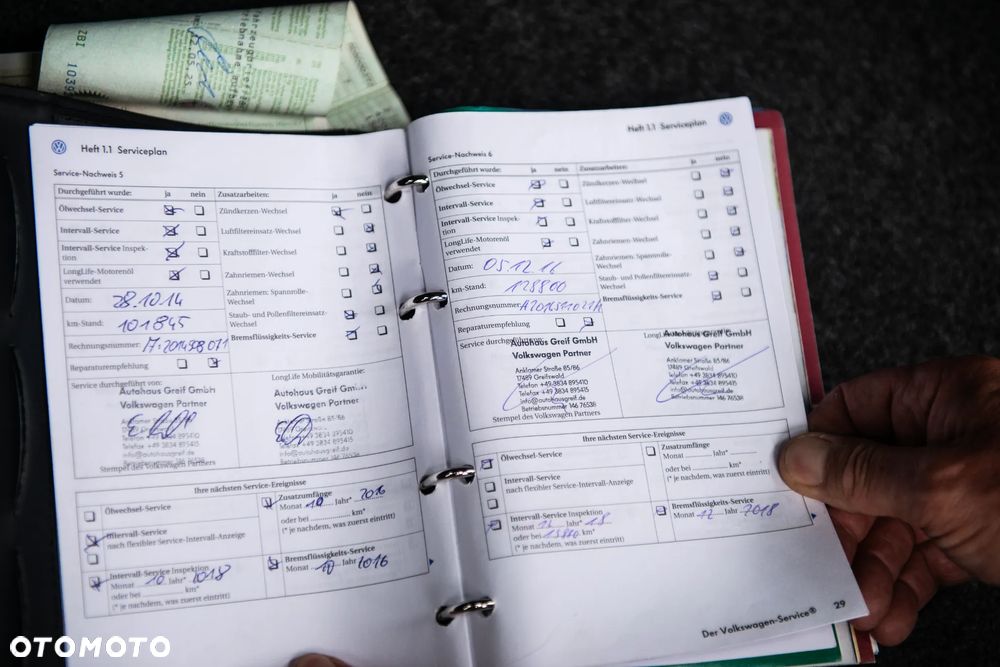 ZBI
1039
12.05.25
Heft 1.1 Serviceplan
Service-Nachweis 5
Durchgeführt wurde: ja nein Zusatzarbeiten: ja nein
Ölwechsel-Service Zündkerzen-Wechsel
Intervall-Service Luftfiltereinsatz-Wechsel
Intervall-Service Inspek-
tion Kraftstofffilter-Wechsel
LongLife-Motorenöl
verwendet Zahnriemen-Wechsel
Datum: 28.10.14 Zahnriemen: Spannrolle-
Wechsel
km-Stand: 101845 Staub- und Pollenfiltereinsatz-
Wechsel
Rechnungsnummer: Bremsflüssigkeits-Service
Reparaturempfehlung
Service durchgeführt von: LongLife Mobilitätsgarantie:
Autohaus Greif GmbH Autohaus Greif GmbH
Volkswagen Partner Volkswagen Partner
Telefon +49 3834 895410
Telefax +49 3834 895415
info@autohausgreif.de
Stempel des Volkswagen Partners
Ihre nächsten Service-Ereignisse
Ölwechsel-Service Zusatzumfänge
Monat 10 Jahr* 2016
oder bei km*
(* je nachdem, was zuerst eintritt)
Intervall-Service
nach flexibler Service-Intervall-Anzeige
Intervall-Service Inspektion Bremsflüssigkeits-Service
Monat 10 Jahr* 2018 Monat 10 Jahr 2016
oder bei km*
(* je nachdem, was zuerst eintritt)
Heft 1.1 Serviceplan
Service-Nachweis 6
Durchgeführt wurde: ja nein Zusatzarbeiten: ja nein
Ölwechsel-Service Zündkerzen-Wechsel
Intervall-Service Luftfiltereinsatz-Wechsel
Intervall-Service Inspek-
tion Kraftstofffilter-Wechsel
LongLife-Motorenöl
verwendet Zahnriemen-Wechsel
Datum: 05.12.16 Zahnriemen: Spannrolle-
Wechsel
km-Stand: 128800 Staub- und Pollenfiltereinsatz-
Wechsel
Rechnungsnummer: Bremsflüssigkeits-Service
Reparaturempfehlung
Service durchgeführt von:
Autohaus Greif GmbH Autohaus Greif GmbH
Volkswagen Partner Volkswagen Partner
Anklamer Straße 85/86 Anklamer Straße 85/86
17489 Greifswald 17489 Greifswald
Telefon +49 3834 895410 Telefon +49 3834 895410
Telefax +49 3834 895415 Telefax +49 3834 895415
info@autohausgreif.de info@autohausgreif.de
Betriebsnummer 146 76538 Betriebsnummer 146 76538
Stempel des Volkswagen Partners
Ihre nächsten Service-Ereignisse
Ölwechsel-Service Zusatzumfänge
Monat Jahr*
oder bei km*
(* je nachdem, was zuerst eintritt)
Intervall-Service
nach flexibler Service-Intervall-Anzeige
Intervall-Service Inspektion Bremsflüssigkeits-Service
Monat 12 Jahr* 18 Monat 12 Jahr 2018
oder bei km*
(* je nachdem, was zuerst eintritt)
Der Volkswagen-Service® 29
OTOMOTO